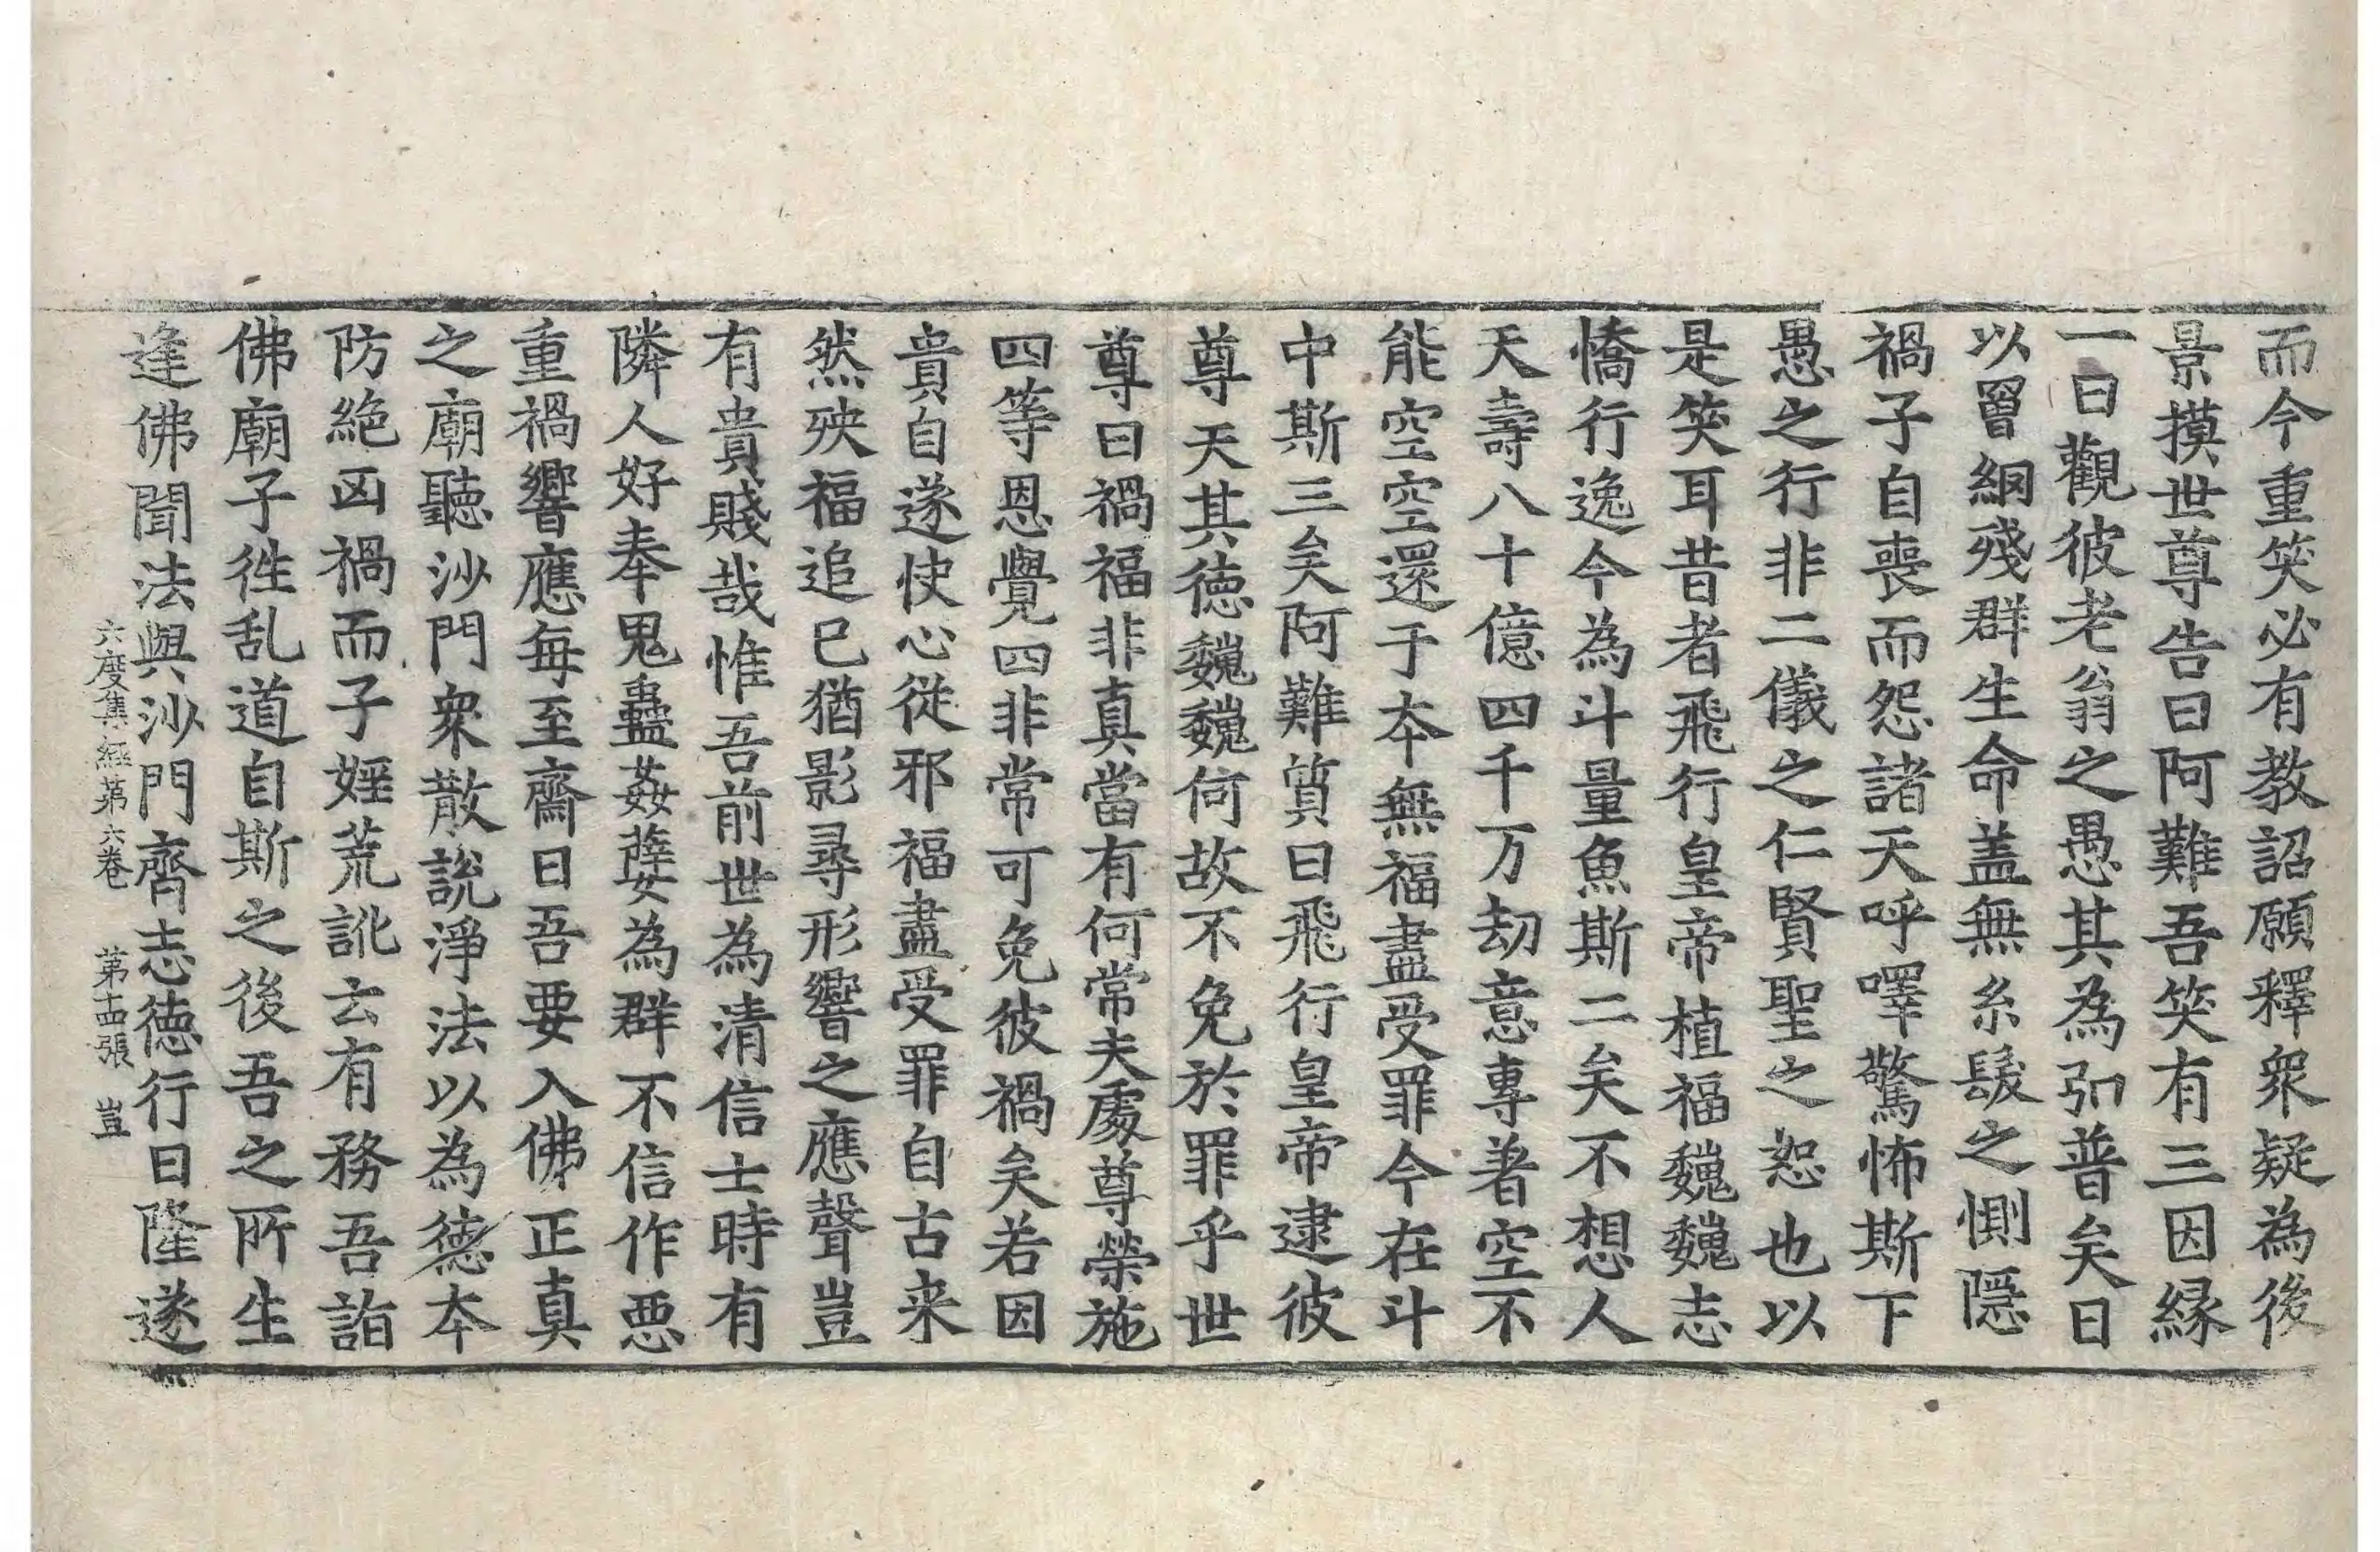 而今重笑必有教詔願釋衆疑為後
景摸世尊告曰阿難吾笑有三因縁
一曰觀彼老翁之愚其為弘普矣日
以罾網殘群生命盖無糸髮之惻隠
禍子自喪而怨諸天呼嚾驚怖斯下
愚之行非二儀之仁賢聖之恕也以
是笑耳昔者飛行皇帝植福巍巍志
憍行逸今為斗量魚斯二矣不想人
天壽八十億四千万劫意專著空不
能空空還于夲無福盡受罪今在斗
中斯三矣阿難質曰飛行皇帝逮彼
尊天其徳巍巍何故不免於罪乎世
尊曰禍福非真當有何常夫處尊榮施
四等恩覺四非常可免彼禍矣若因
貴自遂快心従邪福盡受罪自古来
然殃福追已猶影尋形響之應聲豈
有貴賤哉惟吾前世為清信士時有
隣人好奉鬼蠱姦孽為群不信作悪
重禍響應每至齋日吾要入佛正真
之廟聽沙門衆散說淨法以為徳夲
防絶凶禍而子婬荒訛云有務吾詣
佛廟子徃乱道自斯之後吾之所生
逢佛聞法與沙門齊志徳行日隆遂
六度集經第六卷　第十四張　豈